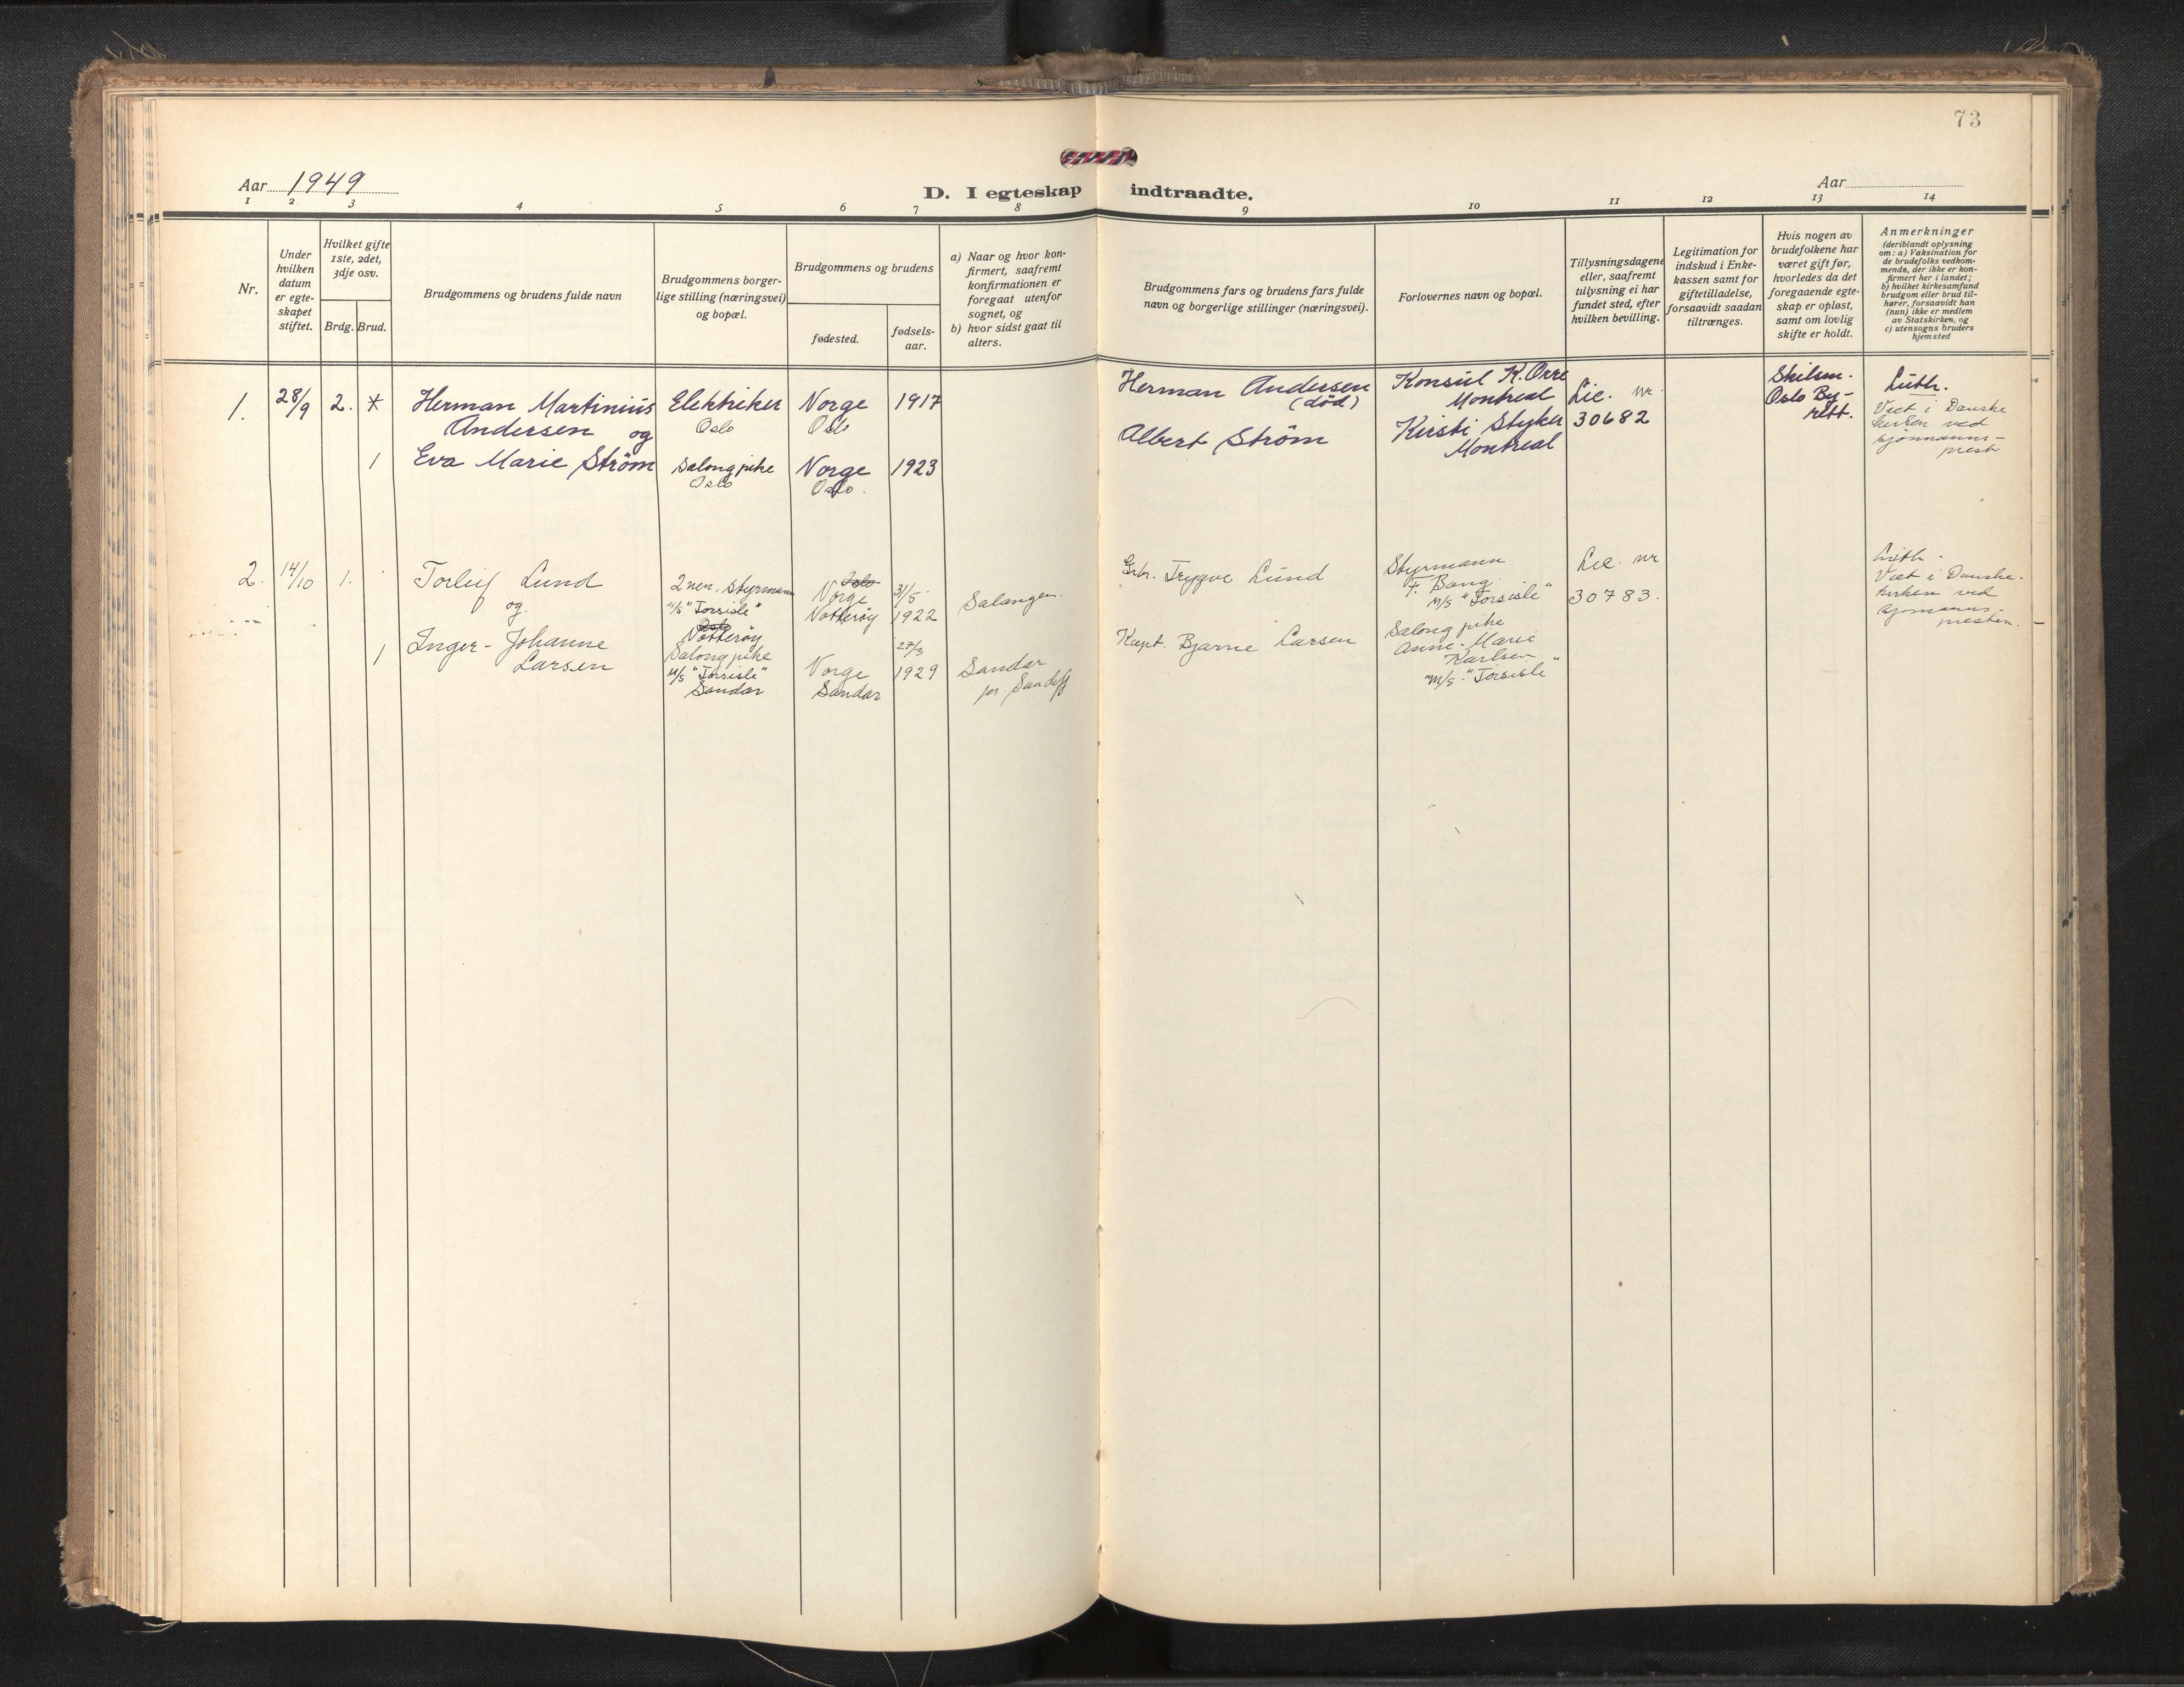 73
Aar 1949
D. I egteskap indtraadte.
Aar
1 2 3 4 5 6 7 8 9 10 11 12 13 14
Nr.
Under
hvilken
datum
er egte-
skapet
stiftet.
Hvilket gifte
1ste, 2det,
3dje osv.
Brdg. Brud.
Brudgommens og brudens fulde navn
Brudgommens borger-
lige stilling (næringsvei)
og bopæl.
Brudgommens og brudens
fødested.
fødsels-
aar.
a) Naar og hvor kon-
firmert, saafremt
konfirmationen er
foregaat utenfor
sognet, og
b) hvor sidst gaat til
alters.
Brudgommens fars og brudens fars fulde
navn og borgerlige stillinger (næringsvei).
Forlovernes navn og bopæl.
Tillysningsdagene
eller, saafremt
tillysning ei har
fundet sted, efter
hvilken bevilling.
Legitimation for
indskud i Enke-
kassen samt for
giftetilladelse,
forsaavidt saadan
tiltrænges.
Hvis nogen av
brudefolkene har
været gift før,
hvorledes da det
foregaaende egte-
skap er opløst,
samt om lovlig
skifte er holdt.
Anmerkninger
(deriblandt oplysning
om: a) Vaksination for
de brudefolks vedkom-
mende, der ikke er kon-
firmert her i landet;
b) hvilket kirkesamfund
brudgom eller brud til-
hører, forsaavidt han
(hun) ikke er medlem
av Statskirken, og
c) utensogns bruders
hjemsted
1.
28/9
2.
Herman Martinius
Andersen og
Elektriker
Oslo
Norge
Oslo
1917
1
Eva Marie Ström
Salongpike
Oslo
Norge
Oslo.
1923
Herman Andersen
(död)
Albert Ström
Konsul K. Orre
Montreal
Kirsti Styker
Montreal
Lic. nr.
30682
Skilsm.
Oslo By-
rett.
Luth.
Viet i Danske
kirken ved
sjömanns-
prest
2.
14/10
1.
Torleif Lund
og
2nen. styrmann
M/S "Torsisle"
Oslo
Nötteröy
Oslo
Norge
Nötteröy
31/5
1922
Salangen.
1
Inger-Johanne
Larsen
Salongpike
M/S "Torsisle"
Sandar
Norge
Sandar
27/3
1929
Sandar
pr. Sandefj
Grbr. Trygve Lund
Kapt. Bjarne Larsen
Styrmann
F. Bang
M/S "Torsisle"
Salongpike
Anne-Marie
Karlsen
M/S "Torsisle"
Lic. nr
30783.
Luth.
Viet i Danske-
kirken ved
sjömanns-
presten.